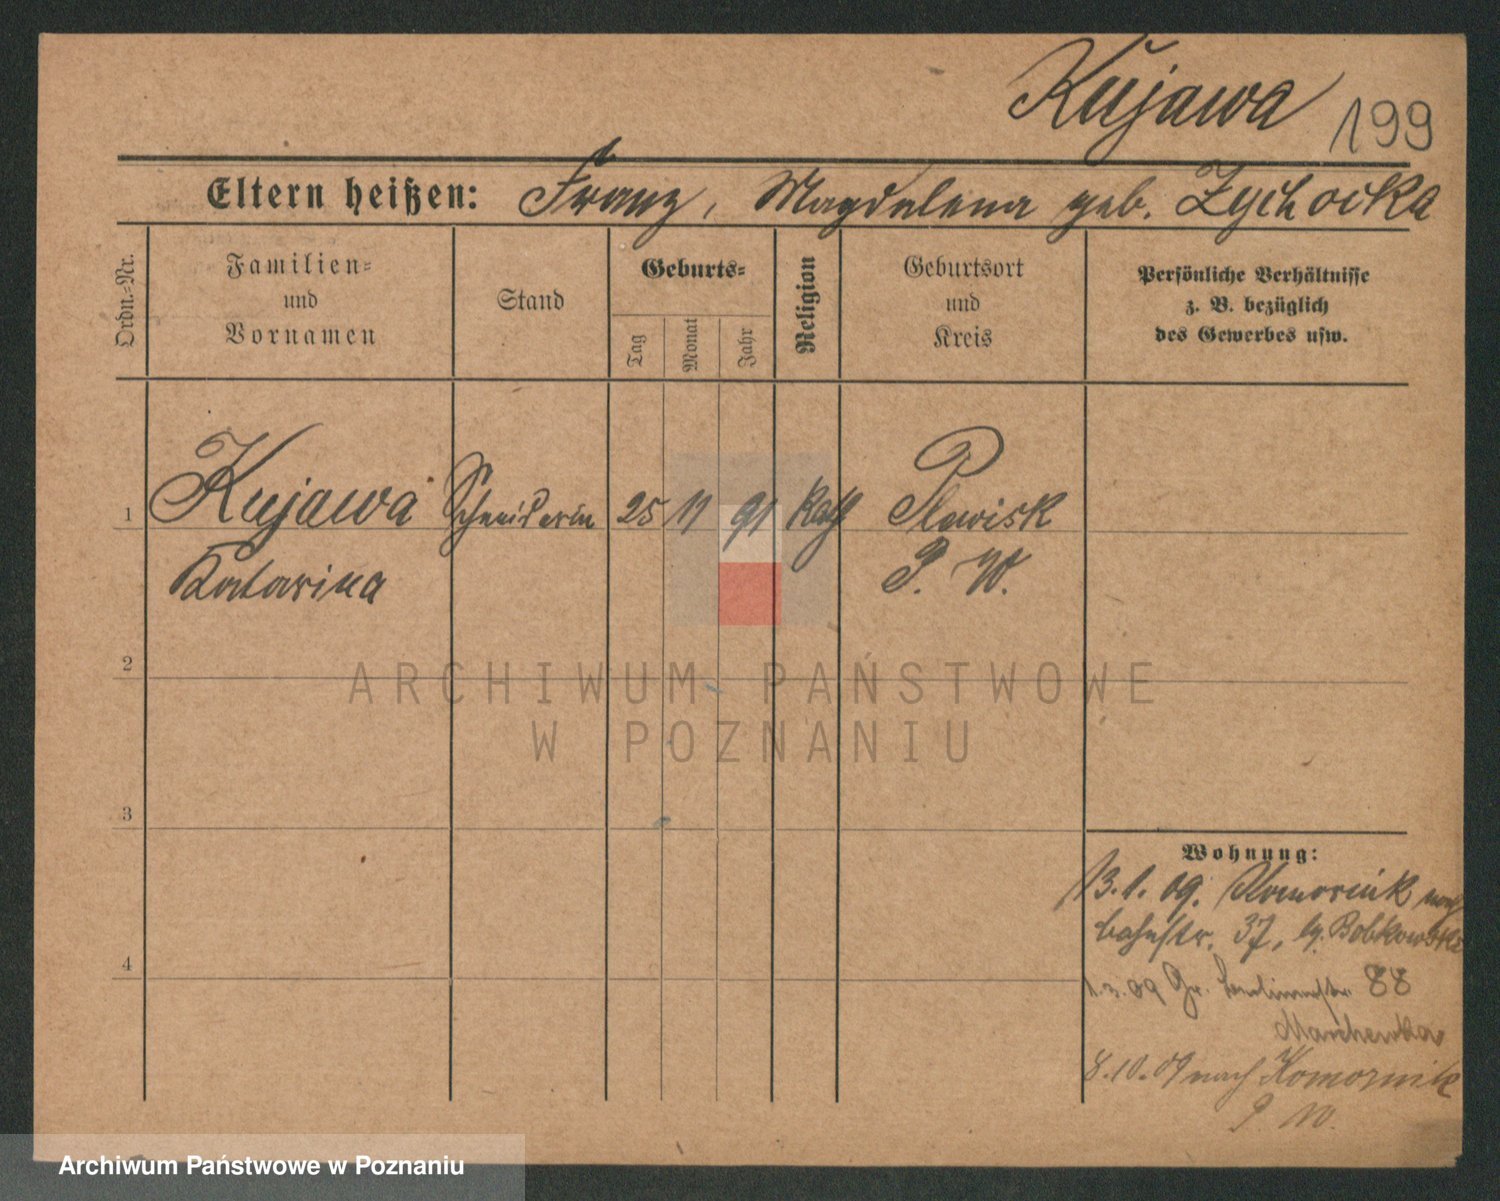 Kujawa 199
Eltern heißen: Franz, Magdalena geb. Zychocka
Ordn.-Nr.
Familien-
und
Vornamen
Stand
Geburts-
Tag
Monat
Jahr
Religion
Geburtsort
und
Kreis
Persönliche Verhältnisse
z. B. bezüglich
des Gewerbes usw.
1 Kujawa Schneiderin 25 11 91 Kath Plewisk
Katarina P. W.
2
3
4
Wohnung:
13.1.09. Komornik
bahnstr. 37, b. Bobkowski
1.3.09 Gr. 88
8.10.09 nach Komornik
P. W.
ARCHIWUM PAŃSTWOWE
W POZNANIU
Archiwum Państwowe w Poznaniu